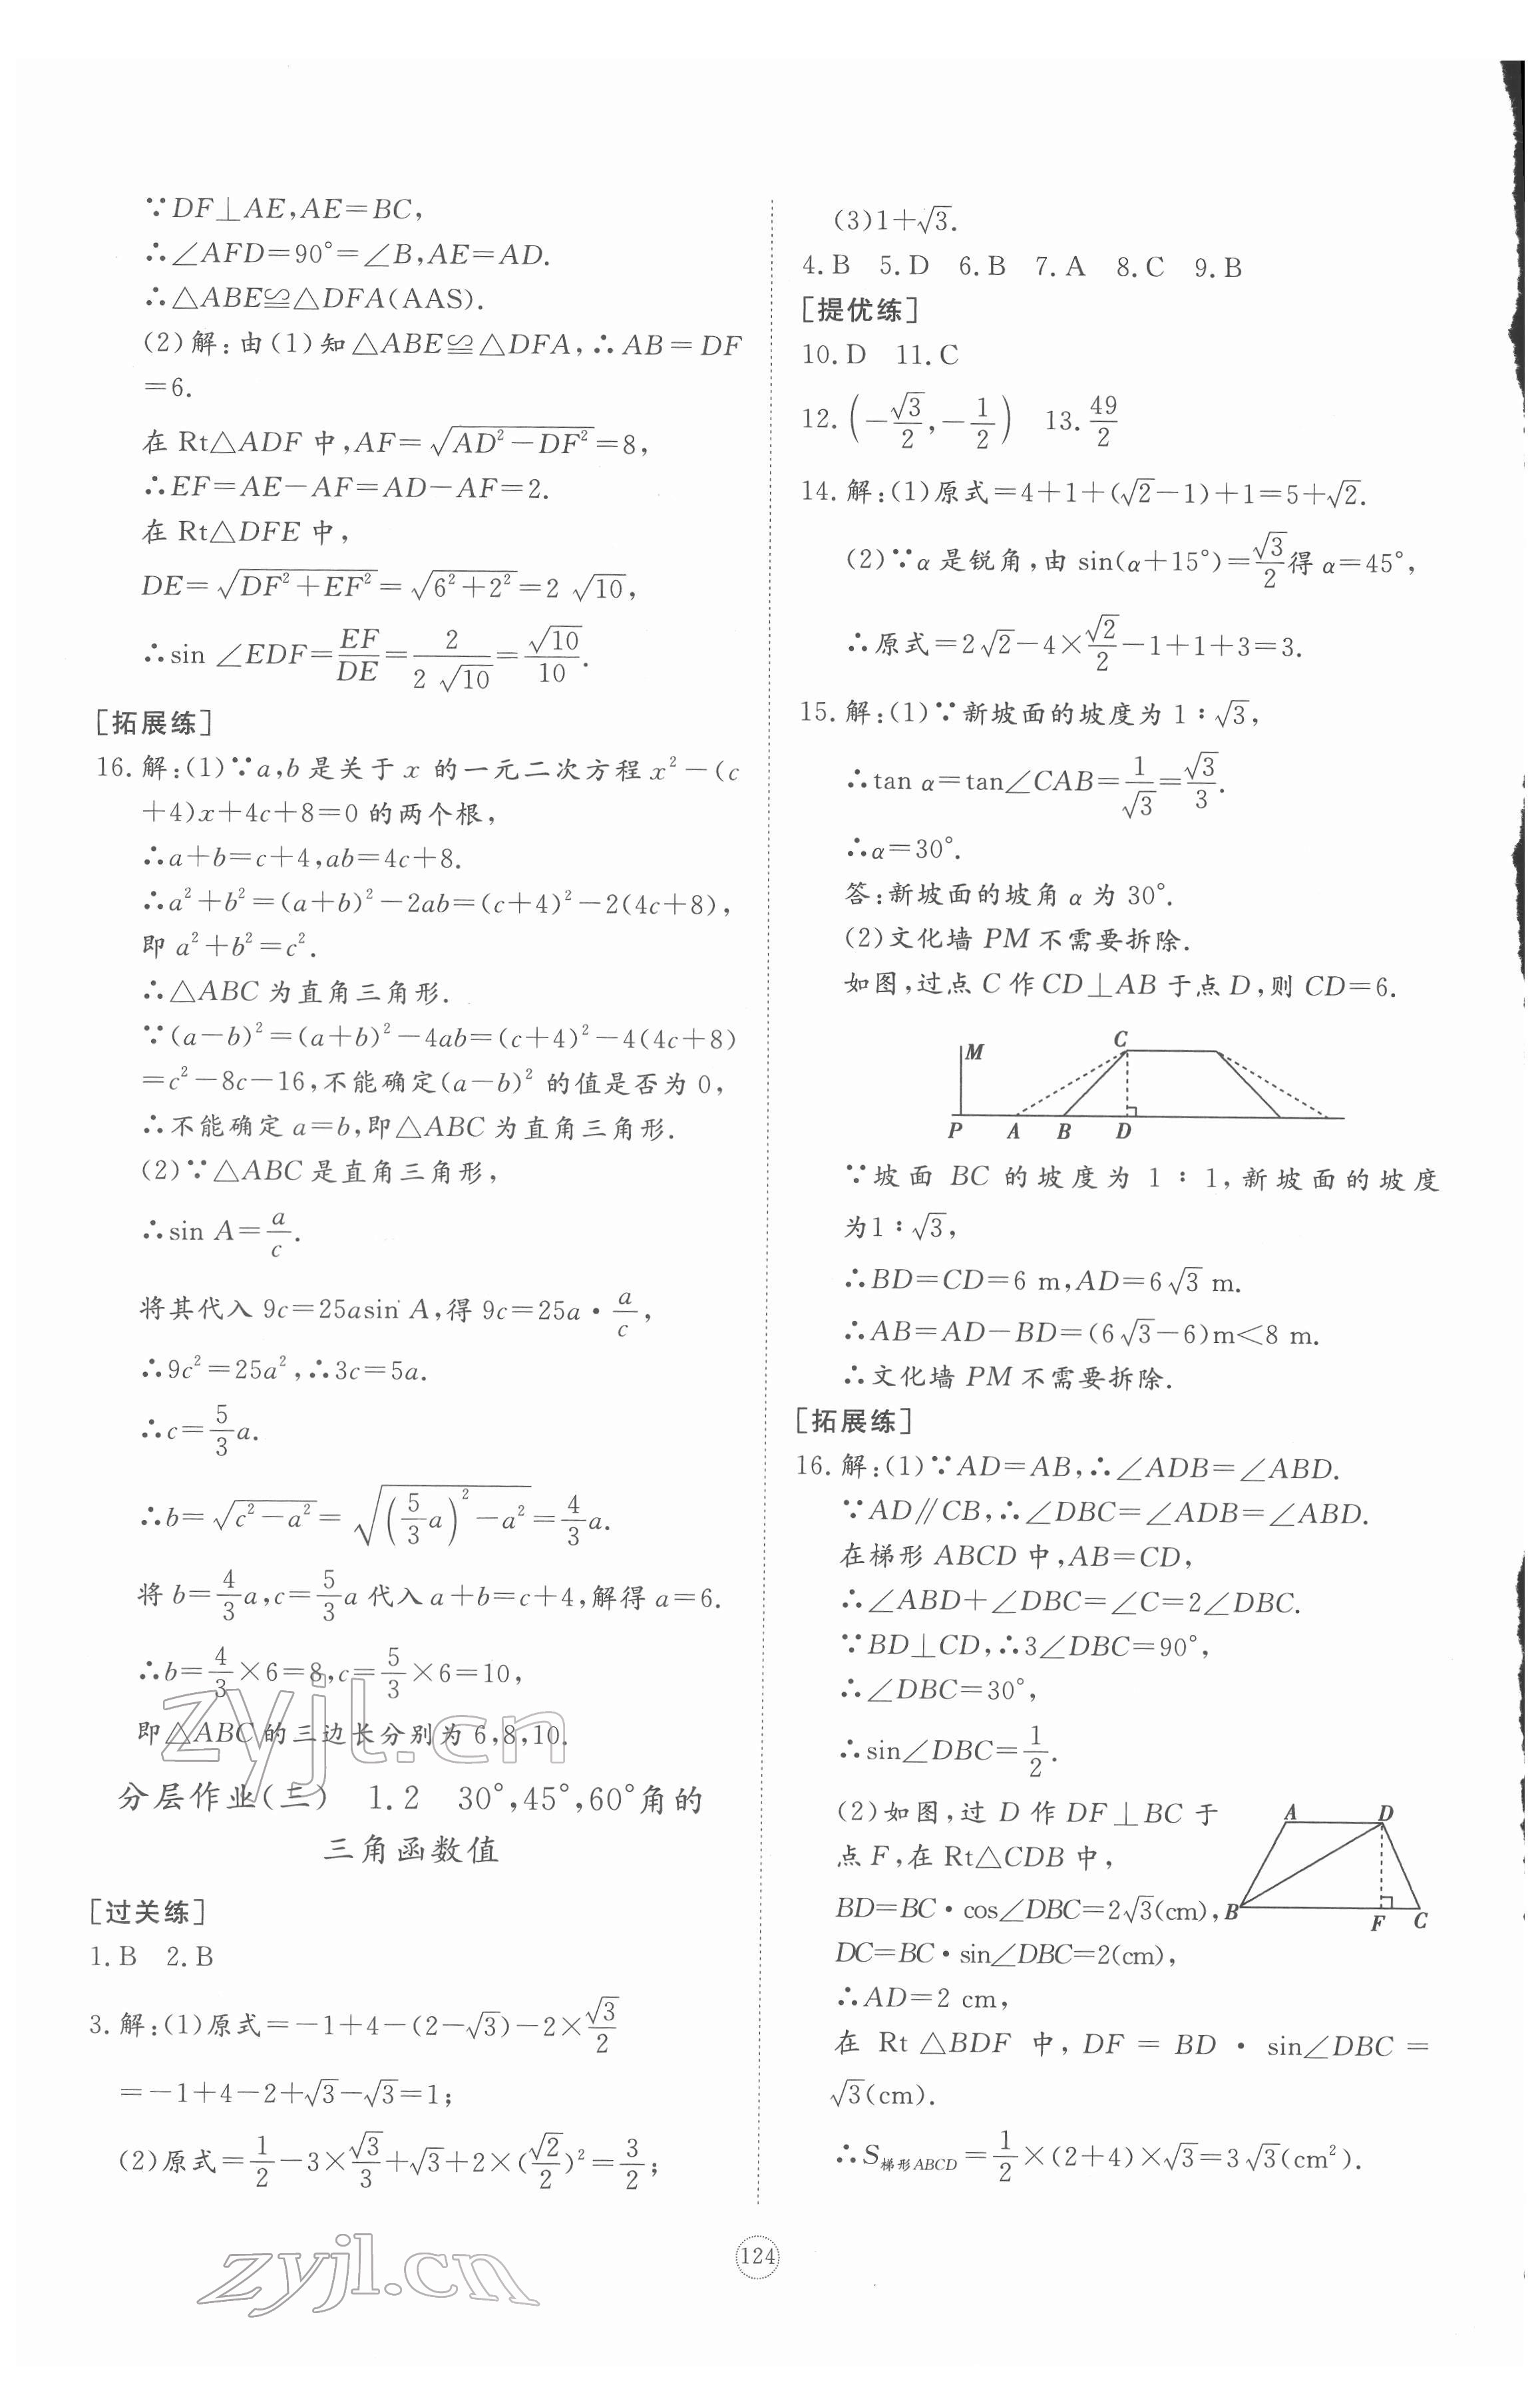 ∵DF⊥AE,AE=BC,
∴∠AFD=90°=∠B,AE=AD.
∴△ABE≌△DFA(AAS).
(2)解:由(1)知△ABE≌△DFA,∴AB=DF
=6.
在 Rt△ADF 中,AF=√(AD²-DF²)=8,
∴EF=AE-AF=AD-AF=2.
在 Rt△DFE 中,
DE=√(DF²+EF²)=√(6²+2²)=2√10,
∴sin ∠EDF=EF/DE=2/(2√10)=√10/10.
[拓展练]
16.解:(1)∵a,b是关于 x 的一元二次方程 x²-(c
+4)x+4c+8=0 的两个根,
∴a+b=c+4,ab=4c+8.
∴a²+b²=(a+b)²-2ab=(c+4)²-2(4c+8),
即 a²+b²=c².
∴△ABC 为直角三角形.
∵(a-b)²=(a+b)²-4ab=(c+4)²-4(4c+8)
=c²-8c-16,不能确定(a-b)² 的值是否为 0,
∴不能确定 a=b,即△ABC 为直角三角形.
(2)∵△ABC 是直角三角形,
∴sin A=a/c.
将其代入 9c=25asin A,得 9c=25a·a/c,
∴9c²=25a²,∴3c=5a.
∴c=5/3a.
∴b=√(c²-a²)=√((5/3a)²-a²)=4/3a.
将 b=4/3a,c=5/3a 代入 a+b=c+4,解得 a=6.
∴b=4/3×6=8,c=5/3×6=10,
即△ABC的三边长分别为 6,8,10.
分层作业(三) 1.2 30°,45°,60°角的
三角函数值
[过关练]
1.B 2.B
3.解:(1)原式=-1+4-(2-√3)-2×√3/2
=-1+4-2+√3-√3=1;
(2)原式=1/2-3×√3/3+√3+2×(√2/2)²=3/2;
(3)1+√3.
4.B 5.D 6.B 7.A 8.C 9.B
[提优练]
10.D 11.C
12.(-√3/2,-1/2) 13.49/2
14.解:(1)原式=4+1+(√2-1)+1=5+√2.
(2)∵α是锐角,由 sin(α+15°)=√3/2得 α=45°,
∴原式=2√2-4×√2/2-1+1+3=3.
15.解:(1)∵新坡面的坡度为 1∶√3,
∴tan α=tan∠CAB=1/√3=√3/3.
∴α=30°.
答:新坡面的坡角 α 为 30°.
(2)文化墙 PM 不需要拆除.
如图,过点 C 作 CD⊥AB 于点 D,则 CD=6.
M C
P A B D
∵坡面 BC 的坡度为 1∶1,新坡面的坡度
为1∶√3,
∴BD=CD=6 m,AD=6√3 m.
∴AB=AD-BD=(6√3-6)m<8 m.
∴文化墙 PM 不需要拆除.
[拓展练]
16.解:(1)∵AD=AB,∴∠ADB=∠ABD.
∵AD∥CB,∴∠DBC=∠ADB=∠ABD.
在梯形 ABCD 中,AB=CD,
∴∠ABD+∠DBC=∠C=2∠DBC.
∵BD⊥CD,∴3∠DBC=90°,
∴∠DBC=30°,
∴sin∠DBC=1/2.
(2)如图,过 D 作 DF⊥BC 于
点 F,在 Rt△CDB 中,
BD=BC·cos∠DBC=2√3(cm),
DC=BC·sin∠DBC=2(cm),
A D
B F C
∴AD=2 cm,
在 Rt△BDF 中,DF=BD·sin∠DBC=
√3(cm).
∴S梯形ABCD=1/2×(2+4)×√3=3√3(cm²).
124
zyjl.cn
zyjl.cn